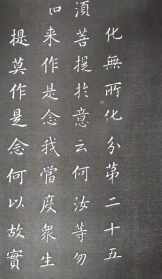 化無所化分第二十五
須菩提於意云何汝等勿
来作是念我當度衆生
提莫作是念何以故實